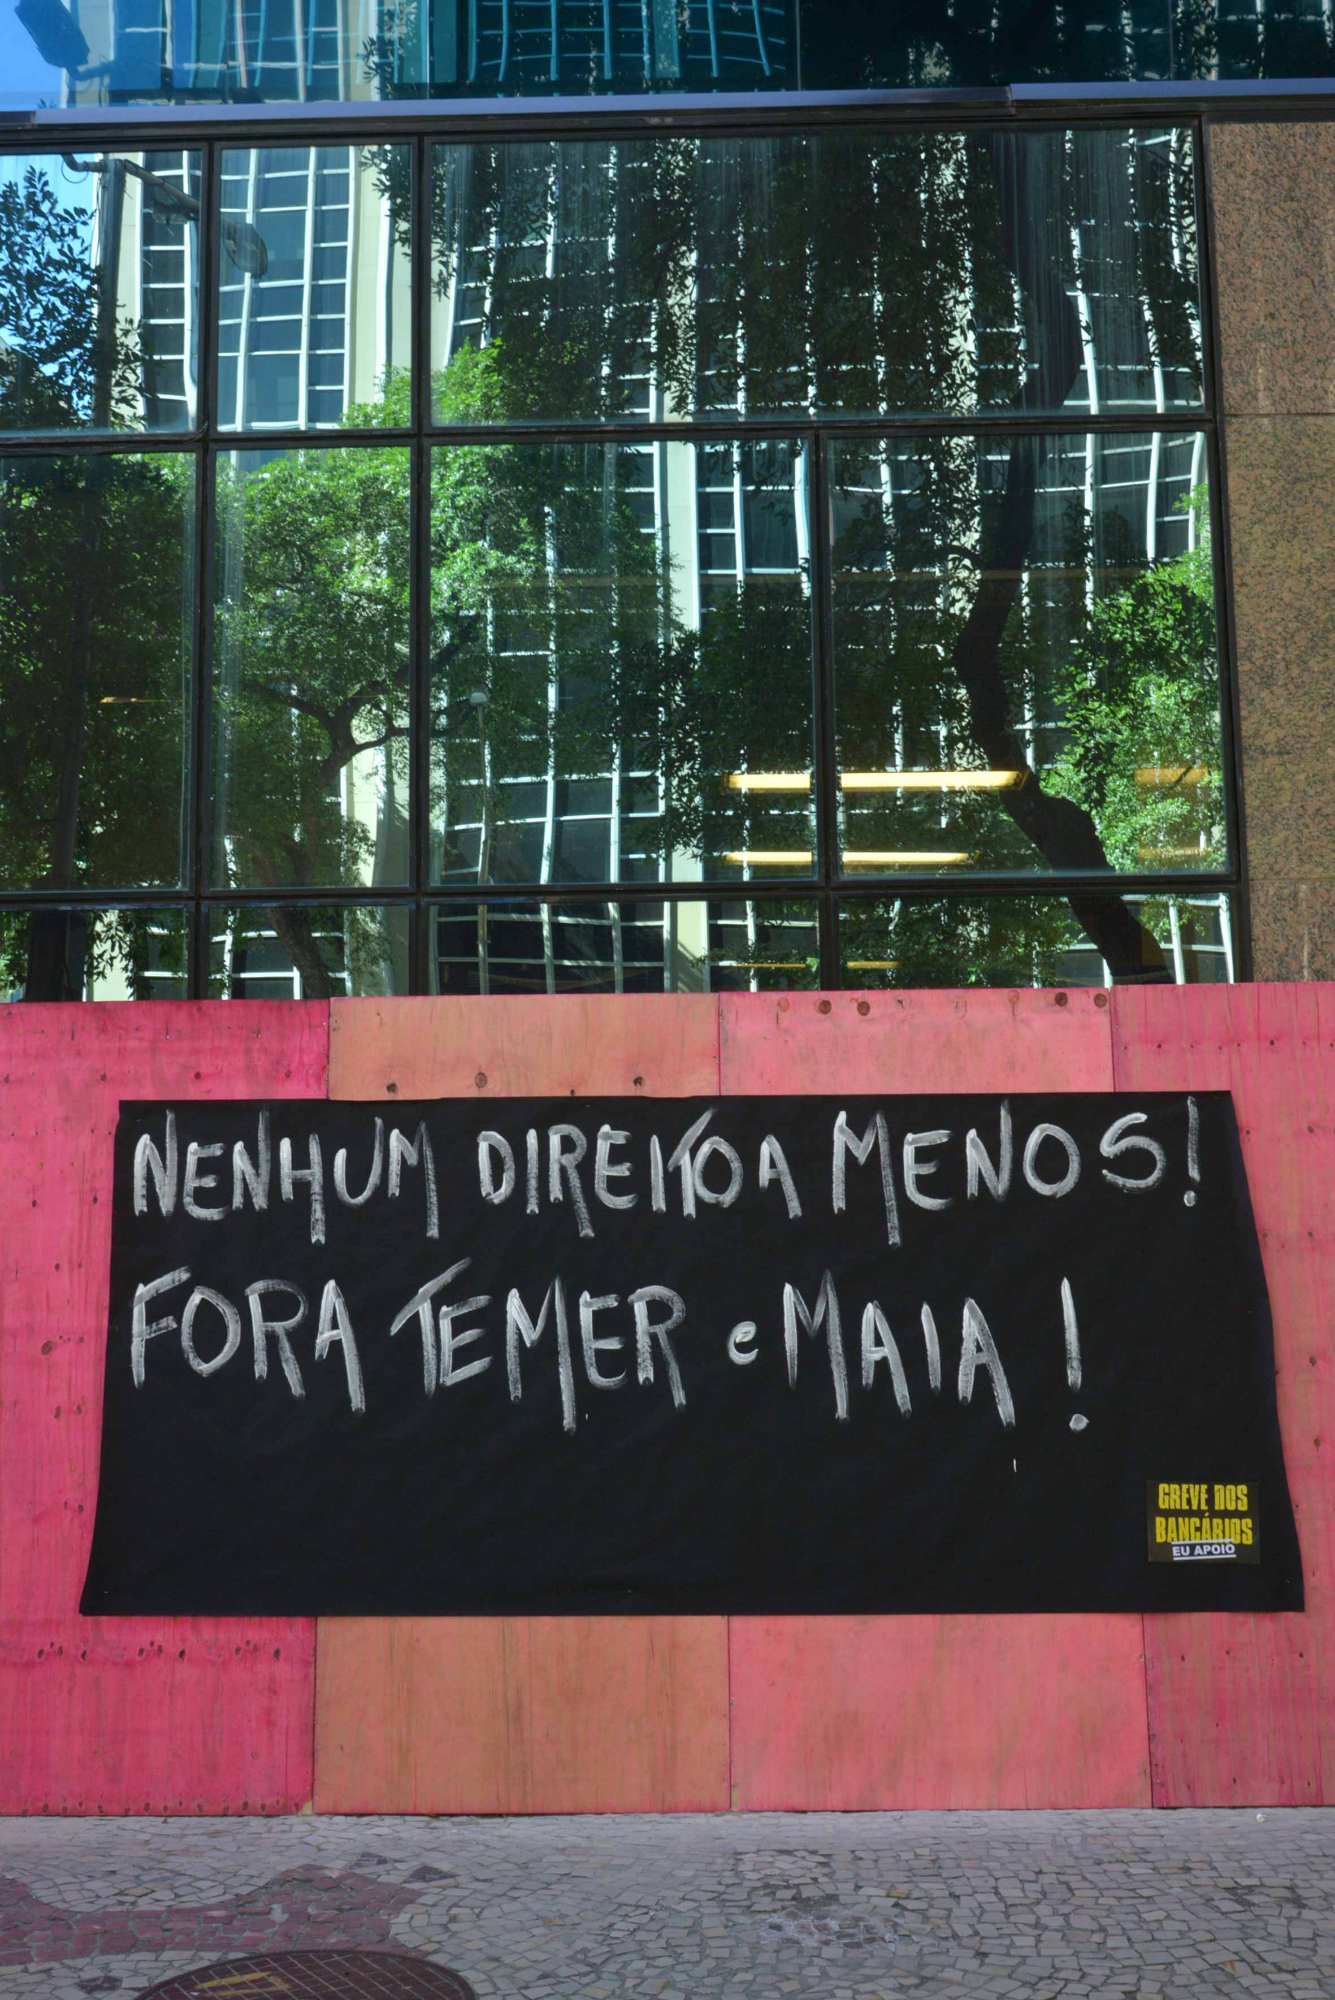 NENHUM DIREITO A MENOS!
FORA TEMER e MAIA!
GREVE DOS
BANCÁRIOS
EU APOIO